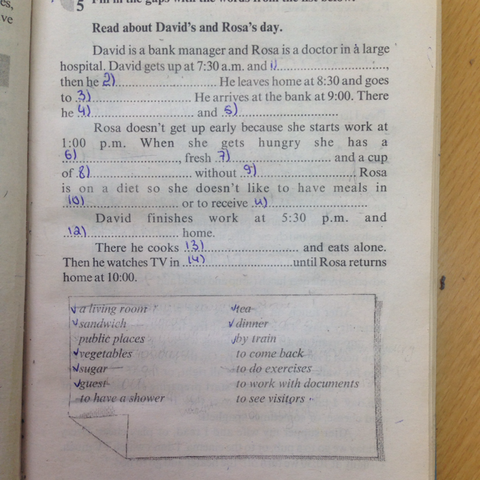 5 Fill in the gaps with the words from the list below.
Read about David's and Rosa's day.
David is a bank manager and Rosa is a doctor in a large
hospital. David gets up at 7:30 a.m. and 1)..............................,
then he 2).............................. He leaves home at 8:30 and goes
to 3).............................. He arrives at the bank at 9:00. There
he 4).............................. and 5)..............................
Rosa doesn't get up early because she starts work at
1:00 p.m. When she gets hungry she has a
6).............................., fresh 7).............................. and a cup
of 8).............................. without 9).............................. Rosa
is on a diet so she doesn't like to have meals in
10).............................. or to receive 11)..............................
David finishes work at 5:30 p.m. and
12).............................. home.
There he cooks 13).............................. and eats alone.
Then he watches TV in 14)..............................until Rosa returns
home at 10:00.
a living room
sandwich
public places
vegetables
sugar
guest
to have a shower
tea
dinner
by train
to come back
to do exercises
to work with documents
to see visitors